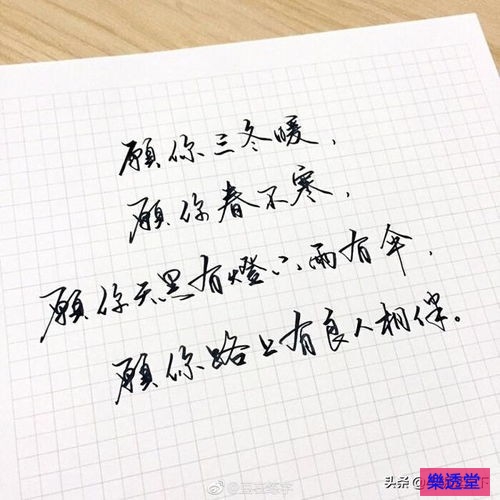 願你三冬暖，
願你春不寒，
願你天黑有燈下雨有傘，
願你路上有良人相伴。
头条
樂透堂
下